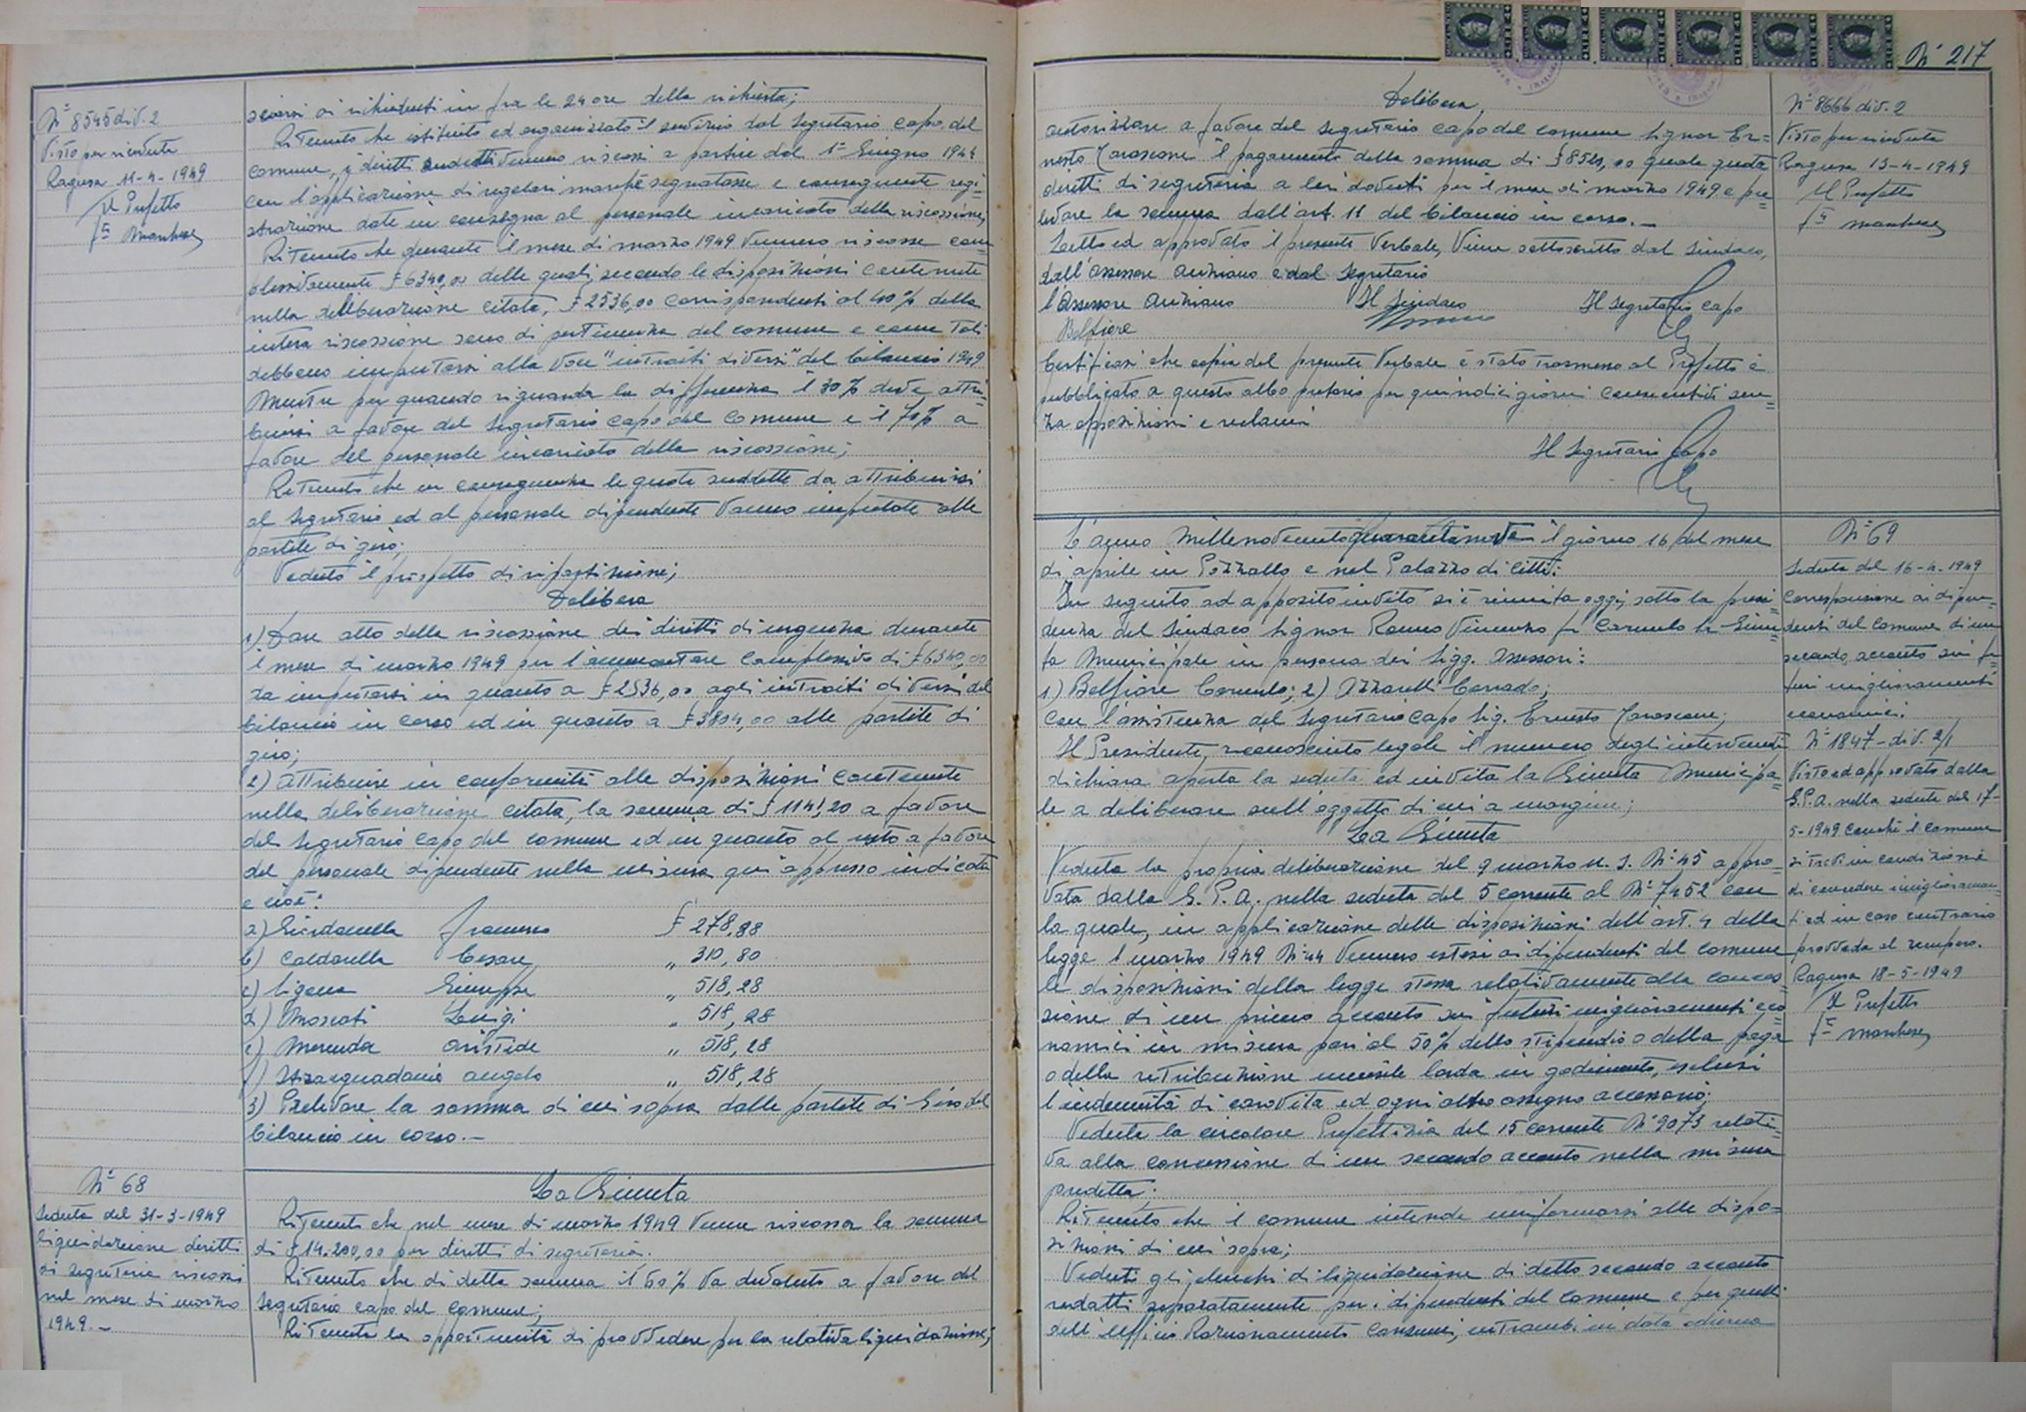 N° 8545 div. 2
Visto per ricevuta
Ragusa 11-4-1949
Il Prefetto
f° Marchese
ai richiedenti in fra le 24 ore della richiesta;
Ritenuto che istituito ed organizzato il servizio dal Segretario capo del
comune, i diritti suddetti vennero riscossi a partire dal 1° Giugno 1944
con l'applicazione di regolari marche segnatasse e conseguente regi=
strazione date in consegna al personale incaricato della riscossione;
Ritenuto che durante il mese di marzo 1949 vennero riscosse com
plessivamente £ 6340,00 delle quali, secondo le disposizioni contenute
nella deliberazione citata, £ 2536,00 corrispondenti al 40% della
intera riscossione sono di pertinenza del comune e come tali
debbono imputarsi alla voce "introiti diversi" del bilancio 1949
mentre per quando riguarda la differenza il 30% deve attri=
buirsi a favore del Segretario capo del Comune e il 70% a
favore del personale incaricato della riscossione;
Ritenuto che in conseguenza le quote suddette da attribuirsi
al Segretario ed al personale dipendente vanno imputate alle
partite di giro;
Veduto il prospetto di ripartizione;
Delibera
1) Dare atto della riscossione dei diritti di urgenza durante
il mese di marzo 1949 per l'ammontare complessivo di £ 6340,00
da imputarsi in quanto a £ 2536,00 agli introiti diversi del
bilancio in corso ed in quanto a £ 3804,00 alle partite di
giro;
2) Attribuire in conformità alle disposizioni contenute
nella deliberazione citata, la somma di £ 1141,20 a favore
del Segretario capo del comune ed in quanto al resto a favore
del personale dipendente nella misura qui appresso indicata
e cioè:
a) Giordanella Francesco £ 278,88
b) Caldarella Cesare " 310,80
c) Ligera Giuseppe " 518,28
d) Moscati Luigi " 518,28
e) Merenda Aristide " 518,28
f) Angelo " 518,28
3) Prelevare la somma di cui sopra dalle partite di Giro del
bilancio in corso.-
N° 68
Seduta del 31-3-1949
Liquidazione diritti
di segreteria riscossi
nel mese di marzo
1949.-
La Giunta
Ritenuto che nel mese di marzo 1949 venne riscossa la somma
di £ 14.200,00 per diritti di segreteria.
Ritenuto che di detta somma il 60% va devoluto a favore del
Segretario capo del comune;
Ritenuta la opportunità di provvedere per la relativa liquidazione;
N° 217
Delibera
autorizzare a favore del Segretario capo del comune Signor Er=
nesto Tarascone il pagamento della somma di £ 8520,00 quale quota
diritti di segreteria a lui dovuti per il mese di marzo 1949 e pre=
levare la somma dall'art. 11 del bilancio in corso.-
Letto ed approvato il presente verbale, viene sottoscritto dal Sindaco,
dall'Assessore Anziano e dal Segretario
L'Assessore Anziano Il Sindaco Il Segretario Capo
Belfiore
Certificasi che copia del presente verbale è stato trasmesso al Prefetto è
pubblicato a questo albo pretorio per quindici giorni consecutivi sen=
za opposizioni e reclami
Il Segretario Capo
N° 8666 div. 2
Visto per ricevuta
Ragusa 13-4-1949
Il Prefetto
f° Marchese
L'anno Millenovecentoquarantanove il giorno 16 del mese
di aprile in Pozzallo e nel Palazzo di Città:
In seguito ad apposito invito si è riunita oggi, sotto la presi=
denza del Sindaco Signor Romeo Vincenzo fu Carmelo la Giun=
ta Municipale in persona dei Sigg. Assessori:
1) Belfiore Carmelo; 2) Azzarelli Corrado;
con l'assistenza del Segretario capo Sig. Ernesto Tarascone;
Il Presidente, riconosciuto legale il numero degli intervenuti
dichiara aperta la seduta ed invita la Giunta Municipa=
le a deliberare sull'oggetto di cui a margine;
La Giunta
Veduta la propria deliberazione del 9 marzo u. s. N° 45 appro=
vata dalla G. P. A. nella seduta del 5 corrente al N° 7452 con
la quale, in applicazione delle disposizioni dell'art. 4 della
legge 1 marzo 1949 N° 44 vennero estesi ai dipendenti del comune
le disposizioni della legge stessa relativamente alla conces=
sione di un primo acconto sui futuri miglioramenti eco=
nomici in misura pari al 50% dello stipendio o della paga
o della retribuzione mensile lorda in godimento, esclusi
l'indennità di carovita ed ogni altro assegno accessorio;
Veduta la circolare Prefettizia del 15 corrente N° 9073 relati=
va alla concessione di un secondo acconto nella misura
predetta;
Ritenuto che il comune intende uniformarsi alle dispo=
sizioni di cui sopra;
Veduti gli elenchi di liquidazione di detto secondo acconto
redatti separatamente per i dipendenti del comune e per quelli
dell'Ufficio Razionamento Consumi, entrambi in data odierna
N° 69
Seduta del 16-4-1949
Corresponsione ai dipen=
denti del comune di un
secondo acconto sui fu=
turi miglioramenti
economici.
N° 1847 - div. 2/1
Visto ed approvato dalla
G.P.A. nella seduta del 17-
5-1949 il comune
si trovi in condizione
di concedere i miglioramen=
ti ed in caso contrario
provveda al recupero.
Ragusa 18-5-1949
Il Prefetto
f° Marchese